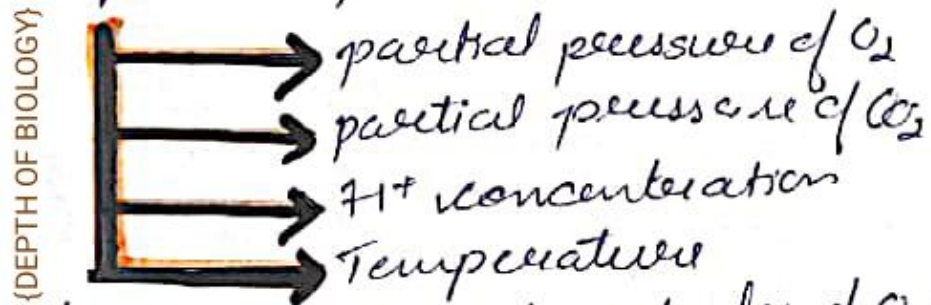 {DEPTH OF BIOLOGY}
partial pressure of O₂
partial pressure of CO₂
H⁺ concenteration
Temperature